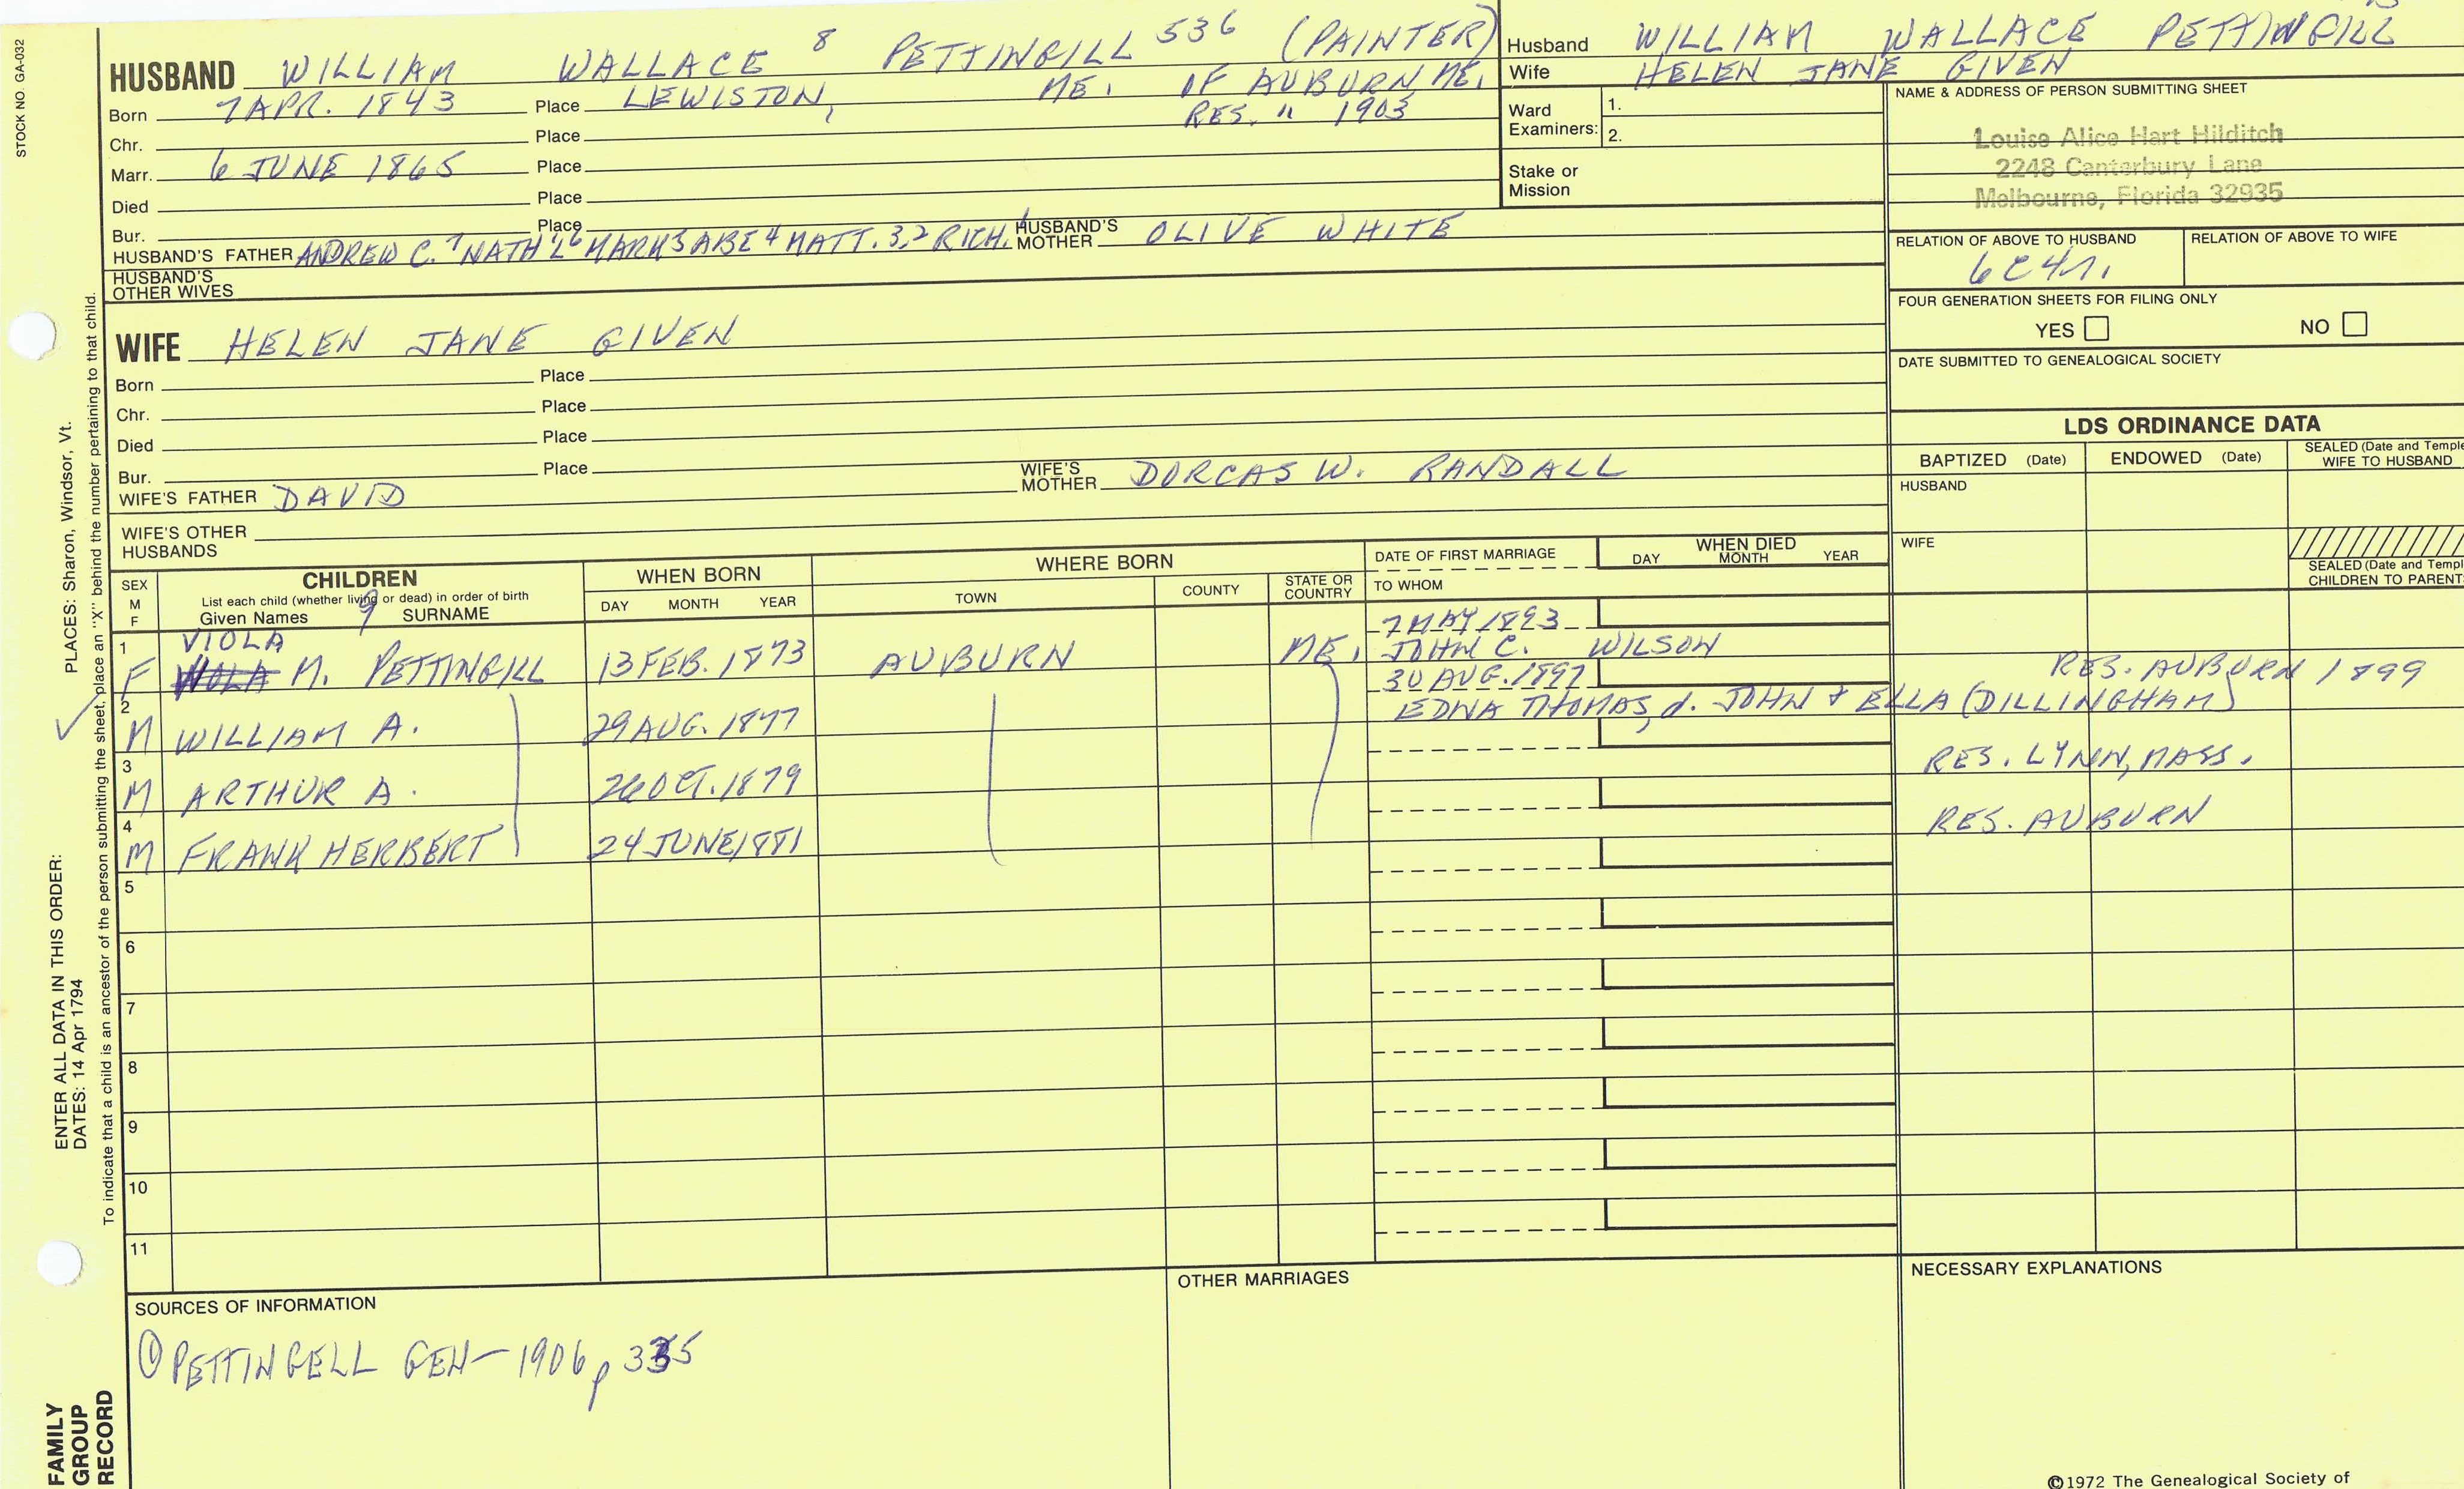 STOCK NO. GA-032
HUSBAND WILLIAM WALLACE 8 PETTINGILL 536 (PAINTER)
Born 7 APR. 1843 Place LEWISTON, ME. OF AUBURN, ME.
Chr. Place RES. " 1903
Marr. 6 JUNE 1865 Place
Died Place
Bur. Place
HUSBAND'S FATHER ANDREW C. 7 NATH'L 6 MARK 5 ABE 4 MATT. 3,2 RICH. 1 HUSBAND'S MOTHER OLIVE WHITE
HUSBAND'S OTHER WIVES
WIFE HELEN JANE GIVEN
Born Place
Chr. Place
Died Place
Bur. Place
WIFE'S FATHER DAVID WIFE'S MOTHER DORCAS W. RANDALL
WIFE'S OTHER HUSBANDS
Husband WILLIAM WALLACE PETTINGILL
Wife HELEN JANE GIVEN
Ward Examiners: 1.
2.
Stake or Mission
NAME & ADDRESS OF PERSON SUBMITTING SHEET
Louise Alice Hart Hilditch
2248 Canterbury Lane
Melbourne, Florida 32935
RELATION OF ABOVE TO HUSBAND RELATION OF ABOVE TO WIFE
6C4R.
FOUR GENERATION SHEETS FOR FILING ONLY
YES NO
DATE SUBMITTED TO GENEALOGICAL SOCIETY
LDS ORDINANCE DATA
BAPTIZED (Date) ENDOWED (Date) SEALED (Date and Temple
WIFE TO HUSBAND
HUSBAND
WIFE
SEALED (Date and Templ
CHILDREN TO PARENT
SEX M F CHILDREN WHEN BORN WHERE BORN DATE OF FIRST MARRIAGE WHEN DIED
List each child (whether living or dead) in order of birth
Given Names 9 SURNAME DAY MONTH YEAR TOWN COUNTY STATE OR COUNTRY TO WHOM DAY MONTH YEAR
1 VIOLA 7 MAY 1893
F M. PETTINGILL 13 FEB. 1873 AUBURN ME. JOHN C. WILSON
2 30 AUG. 1897 RES. AUBURN 1899
M WILLIAM A. 29 AUG. 1877 EDNA THOMAS, d. JOHN & ELLA (DILLINGHAM)
3 M ARTHUR A. 26 OCT. 1879 RES. LYNN, MASS.
4 M FRANK HERBERT 24 JUNE 1881 RES. AUBURN
5
6
7
8
9
10
11
SOURCES OF INFORMATION
① PETTINGELL GEN - 1906 p 335
OTHER MARRIAGES
NECESSARY EXPLANATIONS
©1972 The Genealogical Society of
ENTER ALL DATA IN THIS ORDER:
DATES: 14 Apr 1794 PLACES: Sharon, Windsor, Vt.
To indicate that a child is an ancestor of the person submitting the sheet, place an "X" behind the number pertaining to that child.
FAMILY
GROUP
RECORD